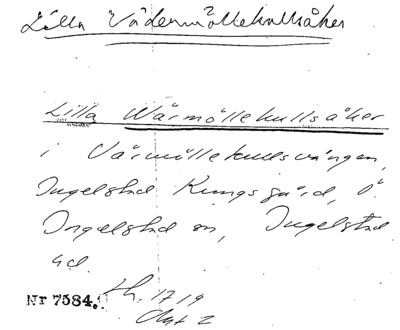 Lilla Vädermöllekullsåker
Lilla Wärmöllekullsåker
i Värmöllekullsvången,
Ingelstad Kungsgård, Ö.
Ingelstad sn, Ingelstad
hd.
Nr 7584. Lh. 1719
Akt 2